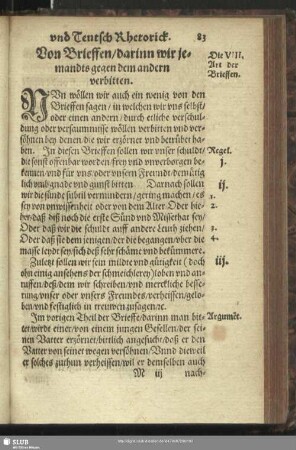 vnd Teutsch Rhetorick. 83
Von Brieffen/darinn wir je-
mandts gegen dem andern
verbitten.
Die VIII.
Art der
Brieffen.
NVn wöllen wir auch ein wenig von den
Brieffen sagen/ in welchen wir vns selbst/
oder einen andern/ durch etliche verschul-
dung oder versaumnisse wöllen verbitten vnd ver-
söhnen bey denen die wir erzörnet vnd betrübt ha-
ben. In diesen Brieffen sollen wir vnser schulde/
die sonst offenbar worden frey vnd vnverborgen be-
kennen/vnd für vns/oder vnsern Freundt/demütig
lich vnd gnade vnd gunst bitten. Darnach sollen
wir die sünde subtil vermindern/gering machen/es
sey von vnwissenheit oder von dem Alter Oder bis-
her/daß deß noch die erste Sünd vnd Missethat sey/
Oder daß wir die schuldt auff andere Leuth ziehen/
Oder daß sie dem jenigen/der die begangen/vber die
masse leydt sey/sich deß sehr schäme vnd bekümmere.
Zuletzt sollen wir sein milde vnd gütigkeit (doch
ohn einig ansehens der schmeichlerey) loben vnd an-
ruffen/deß/dem wir schreiben/vnd merckliche besse-
rung/vnser oder vnsers Freundes/verheissen/gelo-
ben vnd festiglich in trewen zusagen/ꝛc.
Im vorigen Theil der Brieffe/darinn man bit-
tet/wirdt einer/von einem jungen Gesellen/der sei-
nen Vatter erzörnet/bittlich angesucht/daß er den
Vatter von seinet wegen versöhnen/Vnnd dieweil
er solches zuthun verheissen/wil er demselben auch
M iij nach-
Regel.
j.
ij.
1.
2.
3.
4.
iij.
Argumēt.
SLUB
Wir führen Wissen.